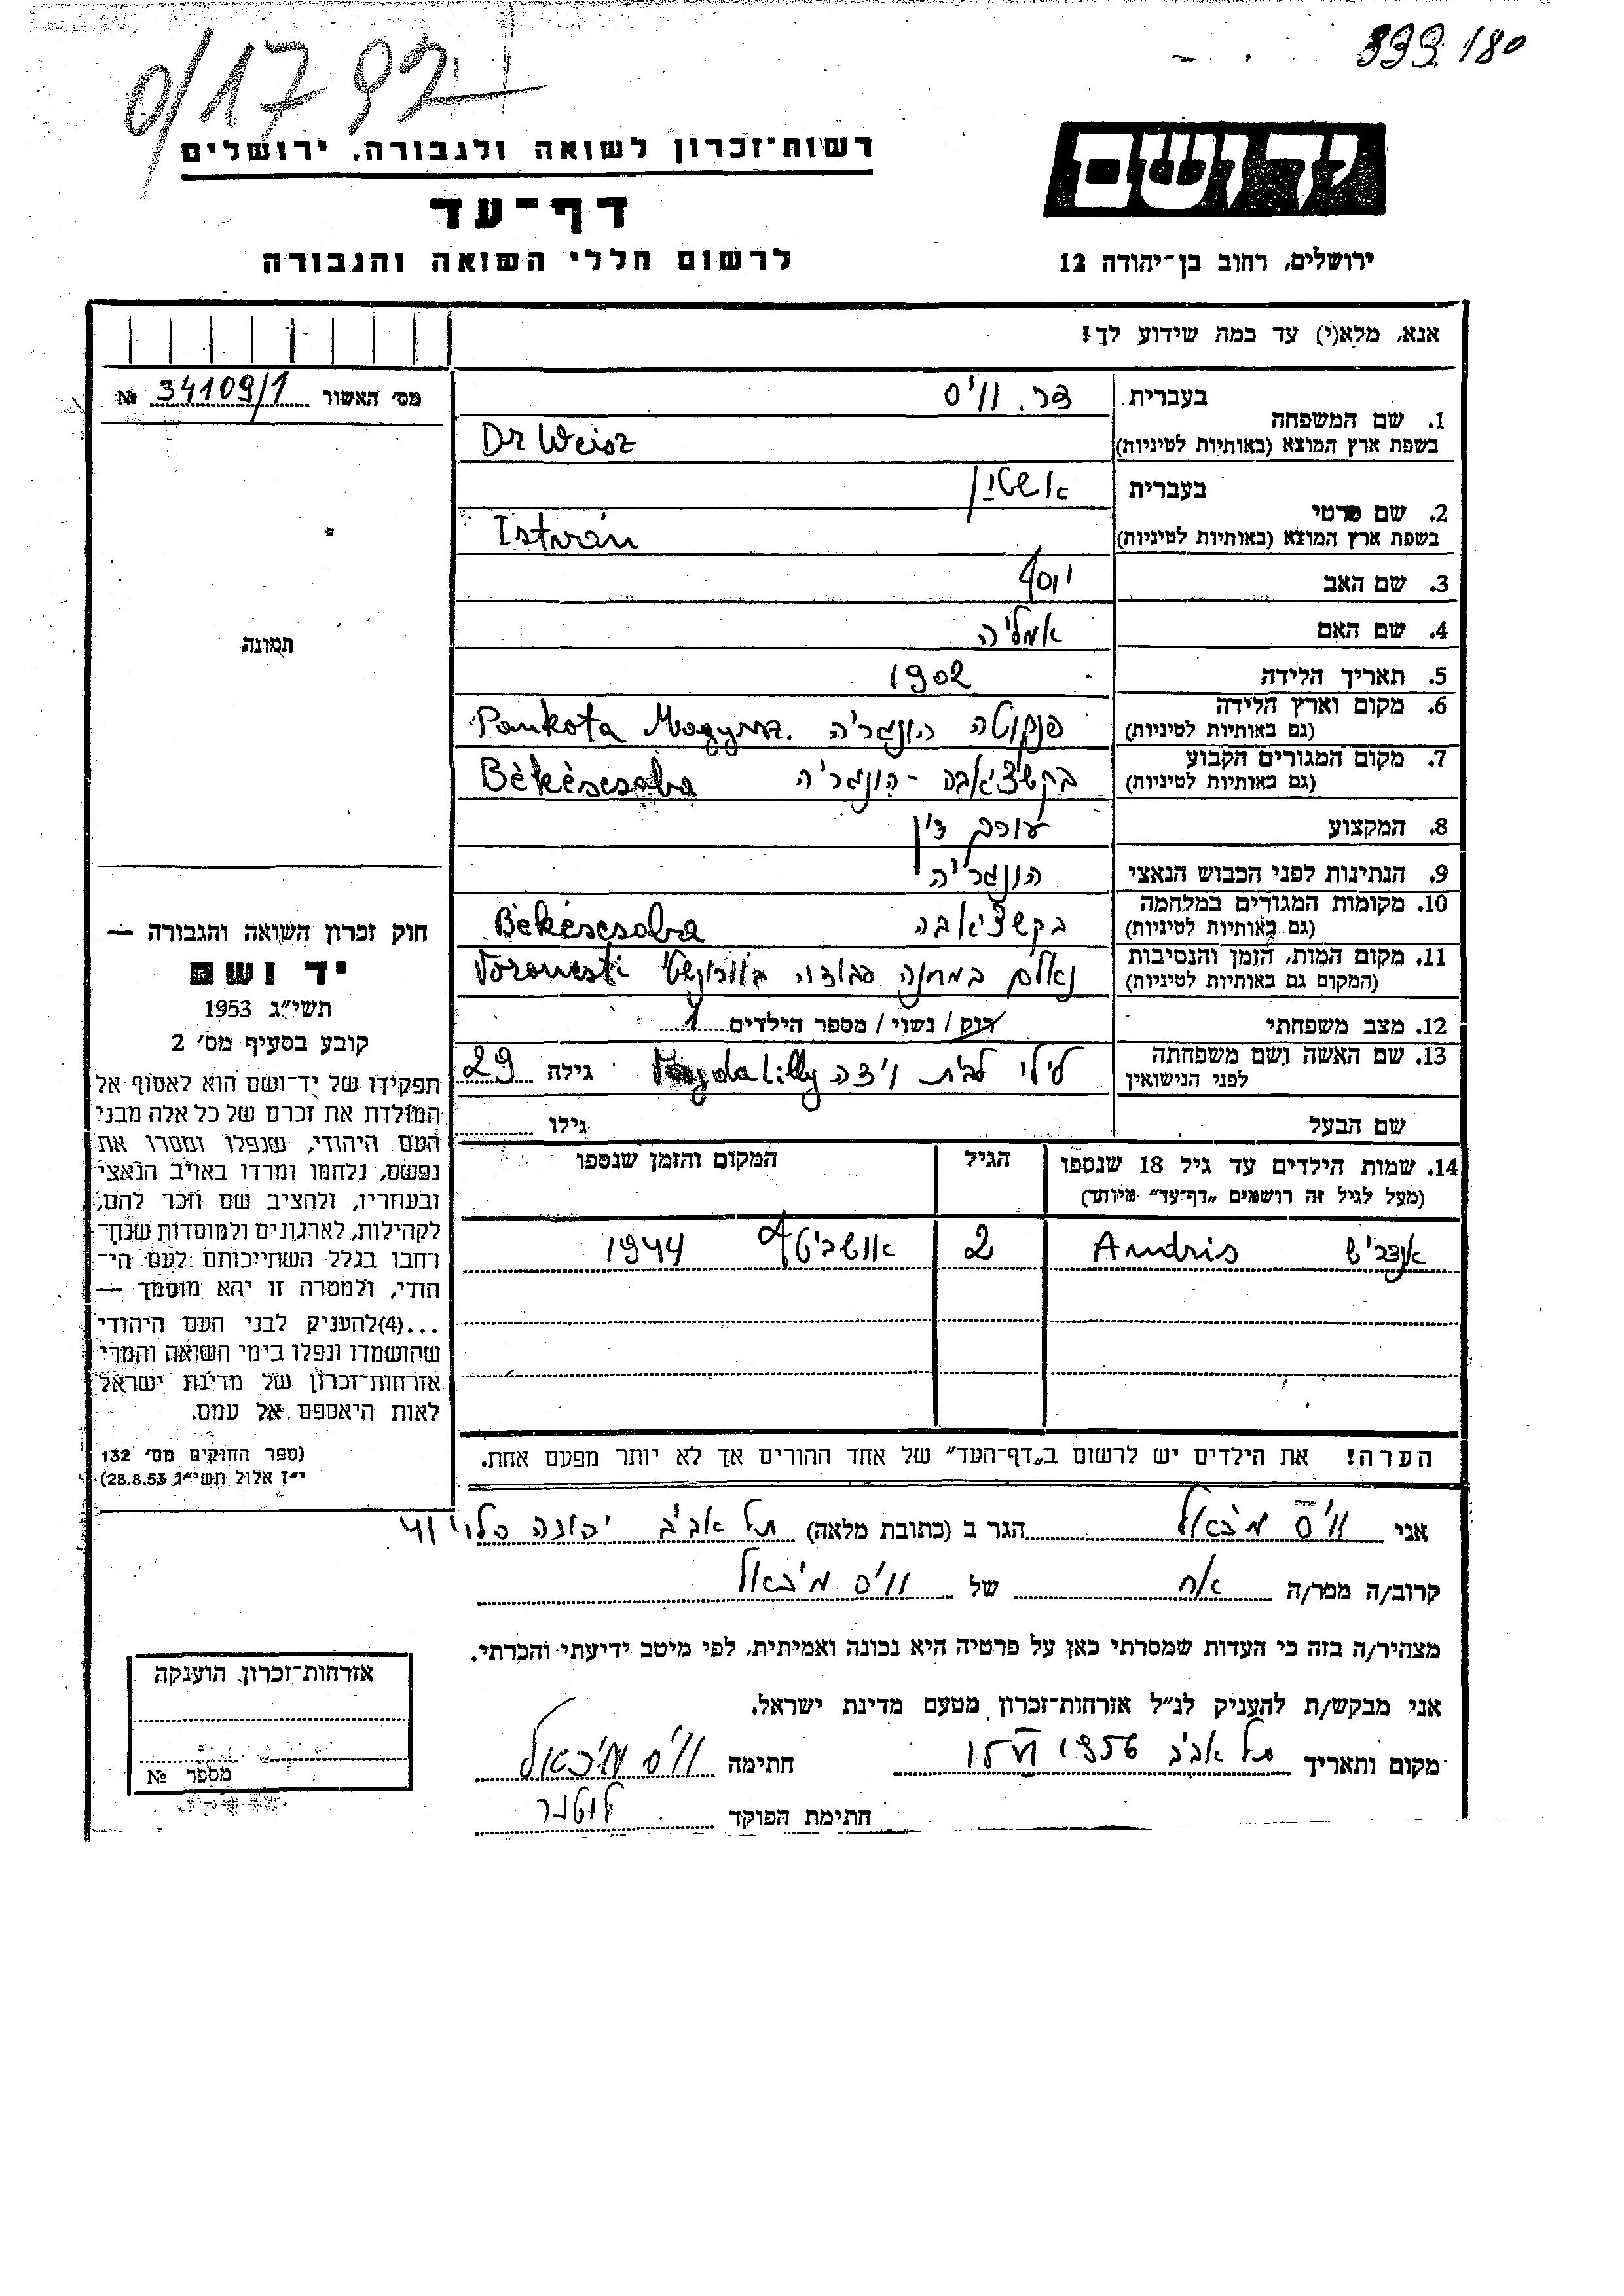 0/17 92
333180
רשות־זכרון לשואה ולגבורה, ירושלים
דף־עד
לרשום חללי השואה והגבורה
יד ושם
ירושלים, רחוב בן־יהודה 12
אנא, מלא(י) עד כמה שידוע לך!
מס׳ האשור № 34109/1
תמונה
1. שם המשפחה בעברית דר. ווייס
בשפת ארץ המוצא (באותיות לטיניות) Dr Weisz
2. שם פרטי בעברית
בשפת ארץ המוצא (באותיות לטיניות) István
3. שם האב יוסף
4. שם האם אמליה
5. תאריך הלידה 1902
6. מקום וארץ הלידה פנקוטה הונגריה Pankota
(גם באותיות לטיניות)
7. מקום המגורים הקבוע בקשצ׳אבה - הונגריה Békéscsaba
(גם באותיות לטיניות)
8. המקצוע עורך דין
9. הנתינות לפני הכבוש הנאצי הונגריה
10. מקומות המגורים במלחמה בקשצ׳אבה Békéscsaba
(גם באותיות לטיניות)
11. מקום המות, הזמן והנסיבות נאלם במחנה עבודה Voronesti
(המקום גם באותיות לטיניות)
12. מצב משפחתי רוק / נשוי / מספר הילדים 1
13. שם האשה ושם משפחתה לילי לבית Magda Lilly גילה 29
לפני הנישואין
שם הבעל גילו
14. שמות הילדים עד גיל 18 שנספו הגיל המקום והזמן שנספו
(מעל לגיל זה רושמים „דף־עד״ מיוחד)
אנדריש Andris 2 אושביטץ 1944
הערה! את הילדים יש לרשום ב„דף־העד״ של אחד ההורים אך לא יותר מפעם אחת.
חוק זכרון השואה והגבורה —
יד ושם
תשי״ג 1953
קובע בסעיף מס׳ 2
תפקידו של יד־ושם הוא לאסוף אל
המולדת את זכרם של כל אלה מבני
העם היהודי, שנפלו ומסרו את
נפשם, נלחמו ומרדו באויב הנאצי
ובעוזריו, ולהציב שם וזכר להם,
לקהילות, לארגונים ולמוסדות שנח־
רחבו בגלל השתייכותם לעם הי־
הודי, ולמטרה זו יהא מוסמך —
...(4) להעניק לבני העם היהודי
שהושמדו ונפלו בימי השואה והמרי
אזרחות־זכרון של מדינת ישראל
לאות היאספם אל עמם.
(ספר החוקים מס׳ 132
י״ז אלול תשי״ג 28.8.53)
אני ווייס מיכאל הגר ב (כתובת מלאה) תל אביב יהודה הלוי 41
קרוב/ה מכר/ה אח של ווייס מיכאל
מצהיר/ה בזה כי העדות שמסרתי כאן על פרטיה היא נכונה ואמיתית, לפי מיטב ידיעתי והכרתי.
אני מבקש/ת להעניק לנ״ל אזרחות־זכרון מטעם מדינת ישראל.
מקום ותאריך תל אביב 15 VI 1956 חתימה ווייס מיכאל
חתימת הפוקד
אזרחות־זכרון הוענקה
מספר №